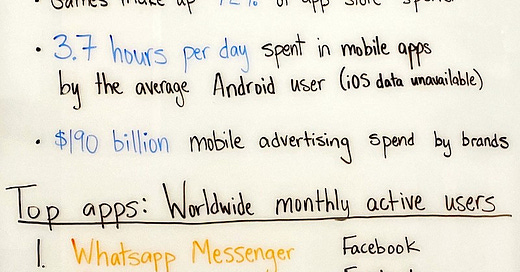 Games make up 72% of app store spend
• 3.7 hours per day spent in mobile apps
by the average Android user (iOS data unavailable)
• $190 billion mobile advertising spend by brands
Top apps: Worldwide monthly active users
1. Whatsapp Messenger Facebook